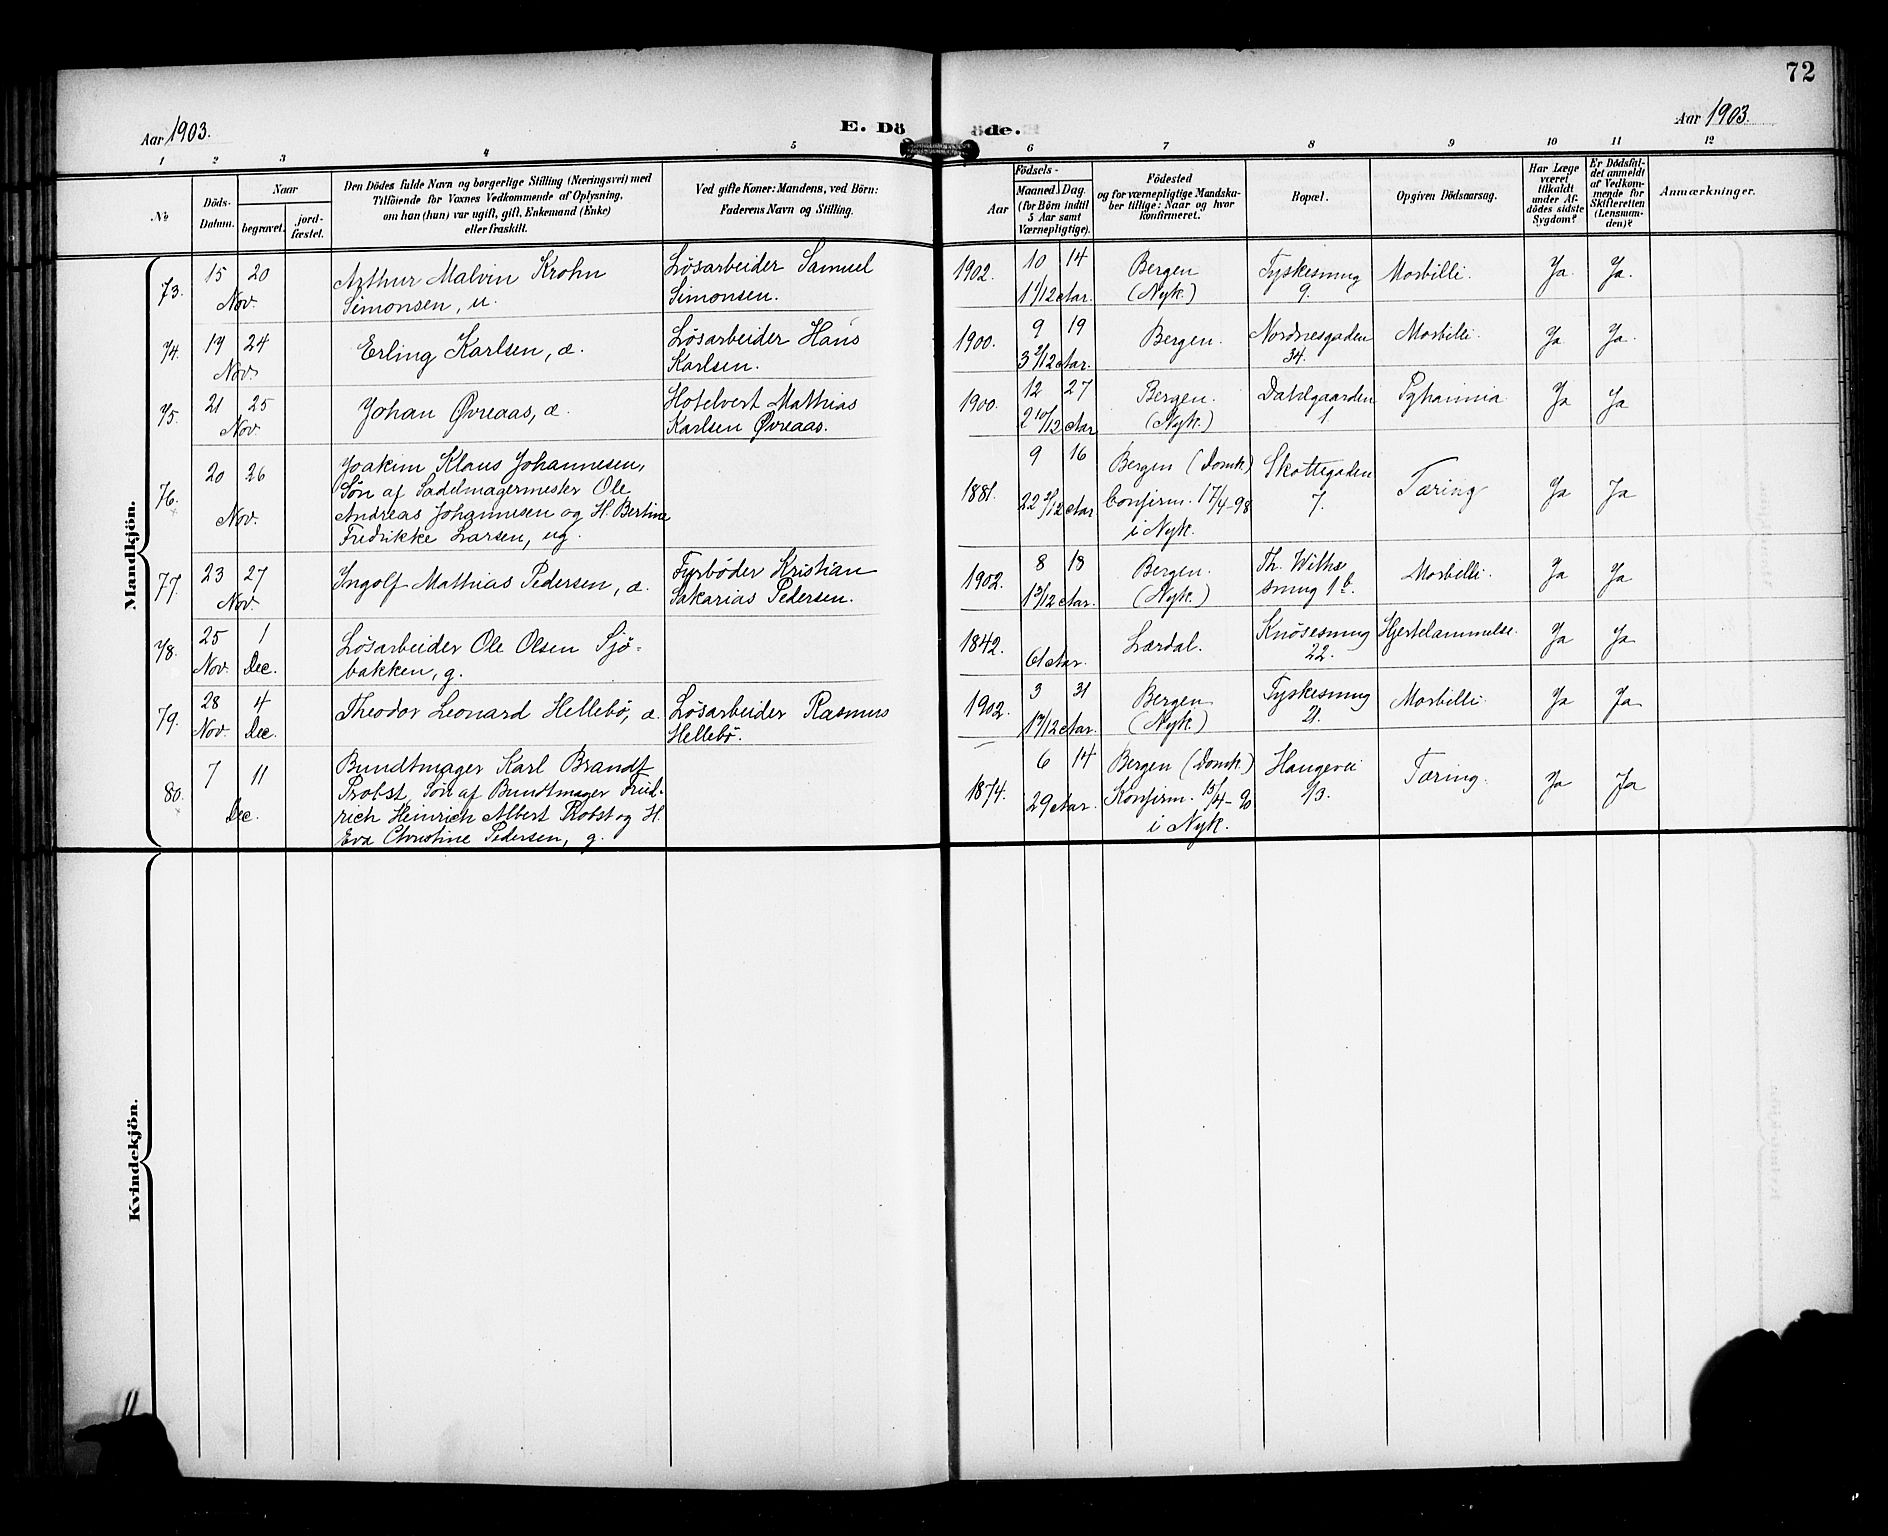 72
Aar 1903.
E. Dö
öde.
Aar 1903.
1 2 3 4 5 6 7 8 9 10 11 12
№
Döds-Datum.
Naar
begravet.
jord-fæstet.
Den Dödes fulde Navn og borgerlige Stilling (Næringsvei) med
Tilföiende for Voxnes Vedkommende af Oplysning,
om han (hun) var ugift, gift, Enkemand (Enke)
eller fraskilt.
Ved gifte Koner: Mandens, ved Börn:
Faderens Navn og Stilling.
Födsels-
Aar
Maaned, Dag.
(for Börn indtil
5 Aar samt
Værnepligtige).
Födested
og for værnepligtige Mandska-
ber tillige: Naar og hvor
konfirmeret.
Bopæl.
Opgiven Dödsaarsag.
Har Læge
været
tilkaldt
under Af-
dödes sidste
Sygdom?
Er Dödsfal-
det anmeldt
af Vedkom-
mende for
Skifteretten
(Lensman-
den)?
Anmærkninger.
Mandkjön.
73. 15 20 Arthur Malvin Krohn Løsarbeider Samuel 1902. 10 14 Bergen Tyskesmug Morbilli. Ja. Ja.
Nov. Simonsen, u. Simonsen. 1 1/12 Aar. (Nyk.) 9.
74. 19 24 Erling Karlsen, æ. Løsarbeider Hans 1900. 9 19 Bergen. Nordnesgaden Morbilli. Ja Ja.
Nov. Karlsen. 3 2/12 Aar. 34.
75. 21 25 Johan Øvreaas, æ. Hotelvert Mathias 1900. 12 27 Bergen. Dahlgaarden Pyhæmia Ja Ja
Nov. Karlsen Øvreaas. 2 10/12 Aar (Nyk.) 1
76. 20 26 Joakim Klaus Johannesen, 1881. 9 16 Bergen (Domk.) Skottegaden Tæring Ja Ja
Søn af Sadelmagermester Ole 22 2/12 Aar Confirm. 17/4-98 7.
Nov. Andreas Johannesen og H. Bertine i Nyk.
Fredrikke Larsen, ug.
77. 23 27 Ingolf Mathias Pedersen, æ. Fyrbøder Kristian 1902. 8 18 Bergen. Th. Withs Morbilli. Ja Ja
Nov Sakarias Pedersen. 1 3/12 Aar. (Nyk.) smug 1 b.
78. 25 1 Løsarbeider Ole Olsen Sjø- 1842. Lærdal. Knøsesmug Hjertelammelse. Ja Ja
Nov. Dec. bakken, g. 61 Aar. 22.
79. 28 4 Theodor Leonard Hellebø, æ. Løsarbeider Rasmus 1902. 3 31 Bergen Tyskesmug Morbilli. Ja Ja
Nov. Dec. Hellebø. 1 7/12 Aar. (Nyk.) 21.
80. 7 11 Bundtmager Karl Brandt 1874. 6 14 Bergen (Domk.) Haugevei Tæring. Ja Ja
Probst, Søn af Bundtmager Fried- 29 Aar. Konfirm. 13/4-90 53.
Dec. rich Heinrich Albert Probst og H. i Nyk.
Eva Christine Pedersen, g.
Kvindekjön.